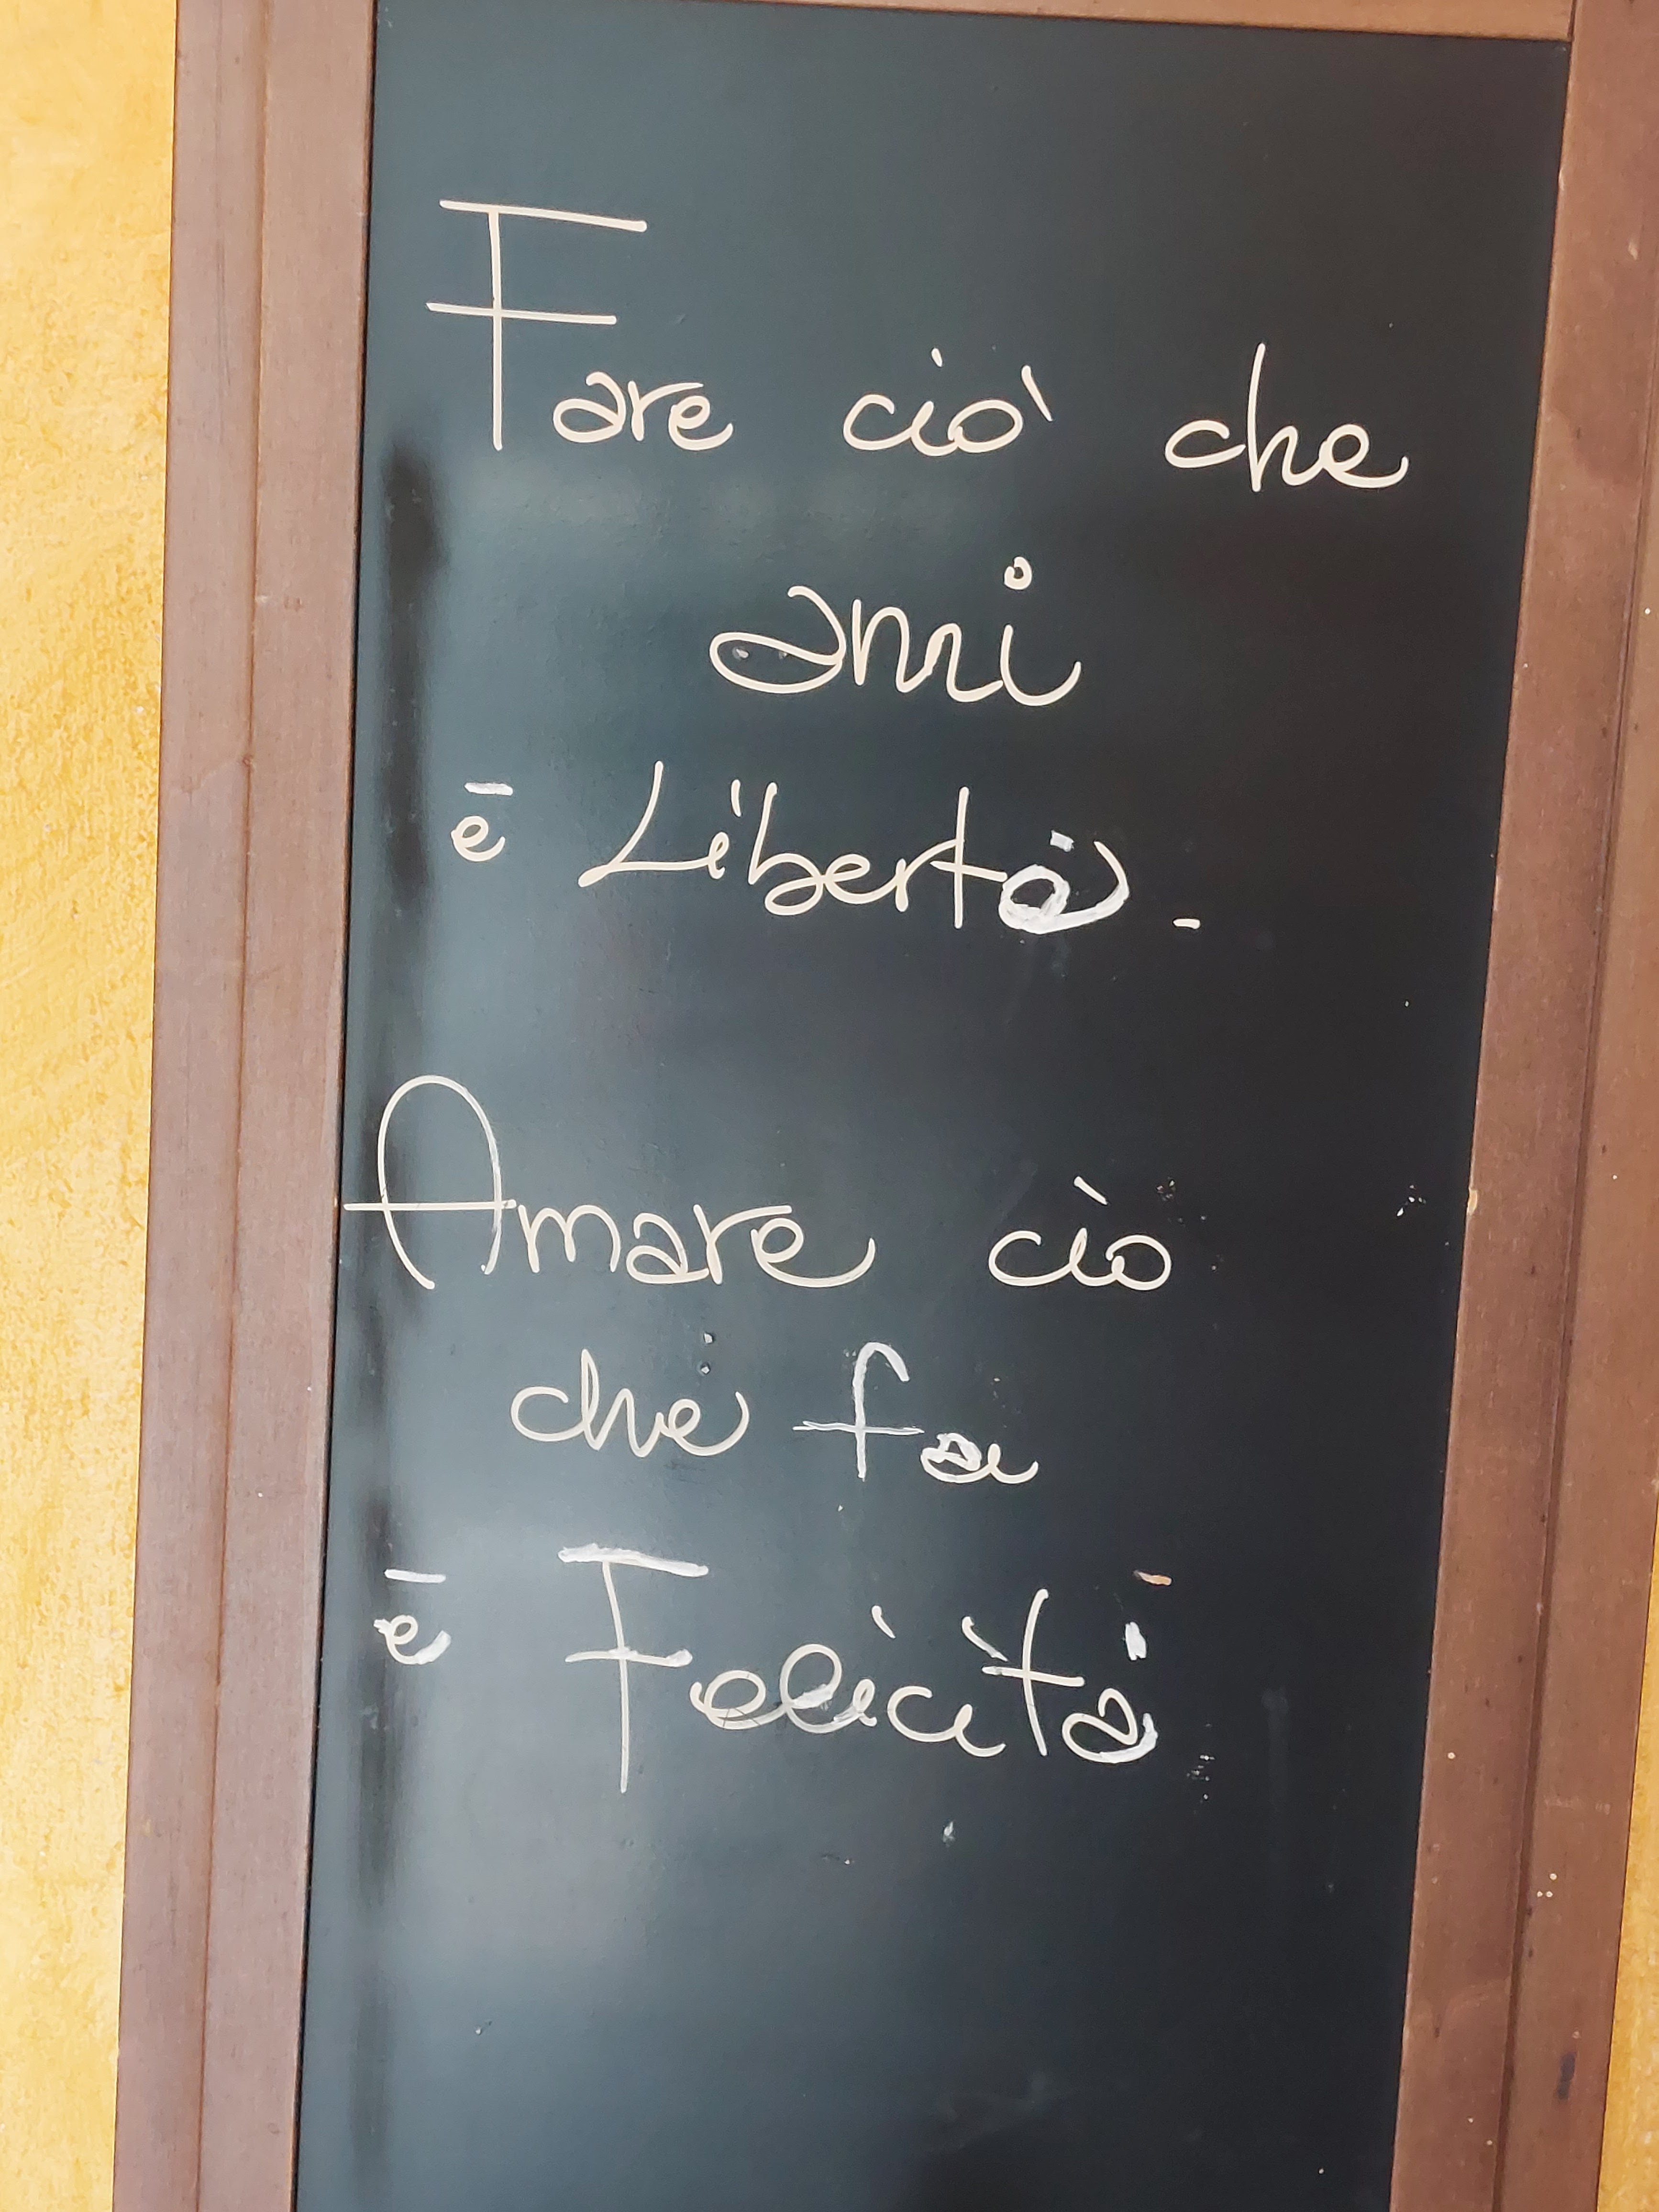 Fare ciò che
ami
è Libertà.
Amare ciò
che fai
è Felicità